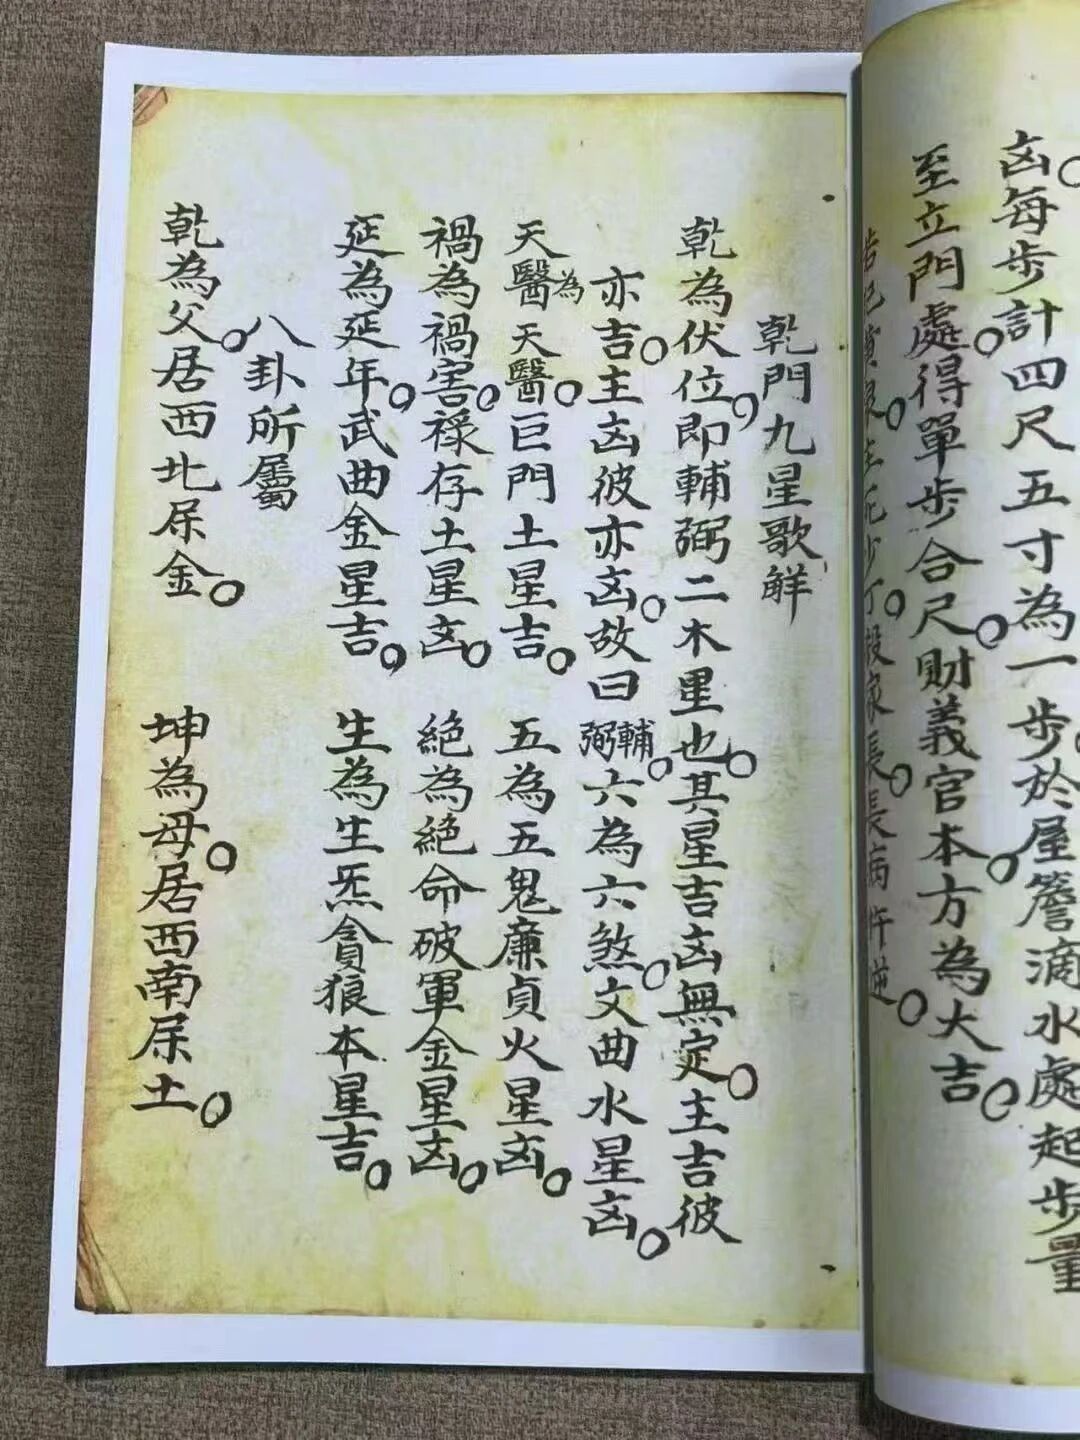 凶每步計四尺五寸為一步於屋簷滴水處起步量
至立門處得單步合尺財義官本方為大吉
乾門九星歌觧
乾為伏位即輔弼二木里也其星吉凶無定主吉彼
亦吉主凶彼亦凶故曰輔弼六為六煞文曲水星凶
天醫為天醫巨門土星吉 五為五鬼廉貞火星凶
禍為禍害祿存土星凶 絕為絕命破軍金星凶
延為延年武曲金星吉 生為生炁貪狼本星吉
八卦所屬
乾為父居西北屎金 坤為母居西南屎土